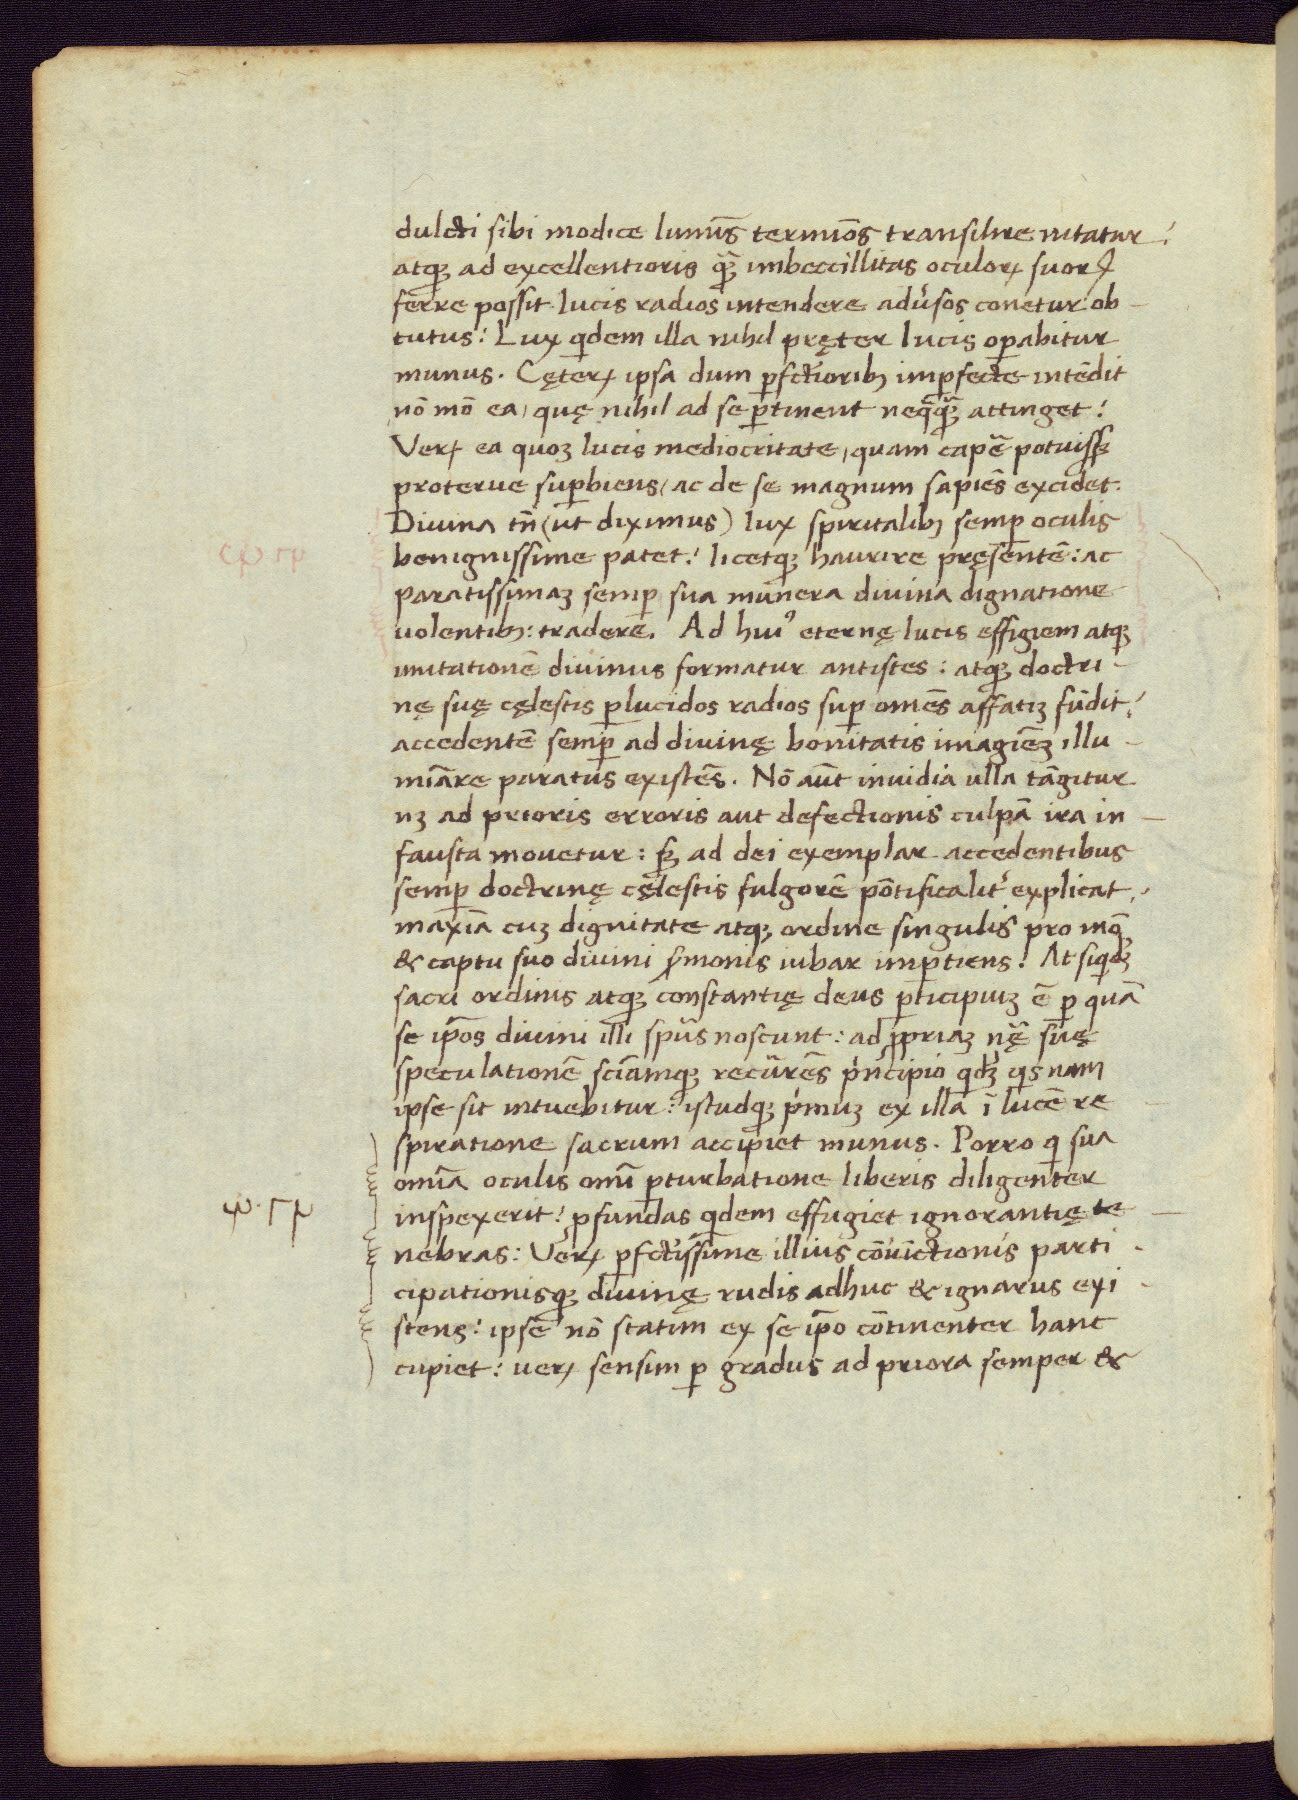 dulcti sibi modice luminis̄ terminōs transilire nitatur:
atqꝫ ad excellentioris qꝫ̃ imbeccillitas oculoꝝ suoꝝ
ferre possit lucis radios intendere adu̓sos conetur ob-
tutus: Lux qdem illa nihil pręter lucis oꝑabitur
munus. Cęteꝝ ipsa dum ꝑfctioribꝫ imꝑfecte intēdit
nō mō ea, quę nihil ad se ꝑtinent neq̃qꝫ̃ attinget:
Veꝝ ea quoꝫ lucis mediocritate, quam capē potuiss̃
proterue suꝑbiens, ac de se magnum sapiēs excidet.
Diuina tn̄ (ut diximus) lux spiritalibꝫ semꝑ oculis
benignissime patet: licetqꝫ haurire pręsentē: ac
paratissimaꝫ semꝑ sua munera diuina dignatione
uolentibꝫ: tradere. Ad huiꝰ eternę lucis effigiem atqꝫ
imitationē diuinus formatur antistes: atqꝫ doctri-
nę suę cęlestis ꝑlucidos radios suꝑ omēs affatiꝫ fūdit:
accedentē semꝑ ad diuinę bonitatis imagiēꝫ illu-
miāre paratus existēs. Nō aūt inuidia ulla tāgitur
nꝫ ad prioris erroris aut defectionis culpā ira in-
fausta mouetur: sꝫ ad dei exemplar accedentibus
semꝑ doctrinę cęlestis fulgorē pōtificalit̓ explicat,
maxīa cuꝫ dignitate atqꝫ ordine singulis pro
& captu suo diuini s̓monis iubar imꝑtiens: At siqdꝫ
sacri ordinis atqꝫ constantię deus ꝑticipiuꝫ ē ꝑ quā
se ip̄os diuini illi sp̄us noscunt: ad ꝓpriaꝫ nę̃ suę
speculationē sciāmqꝫ recūrēs p̓ncipio qdꝫ qsnam
ipse sit intuebitur: istudqꝫ p̓muꝫ ex illa ī lucē re
spiratione sacrum accipiet munus. Porro q sua
omīa oculis omī ꝑturbatione liberis diligenter
inspexerit: ꝓfundas qdem effugiet ignorantię te-
nebras: Veꝝ ꝑfctissime illius cōuīctionis parti-
cipationisqꝫ diuinę rudis adhuc & ignarus exi-
stens: ipse nō statim ex se ip̄o cōtinenter hanc
cupiet: ueꝝ sensim ꝑ gradus ad priora semper &